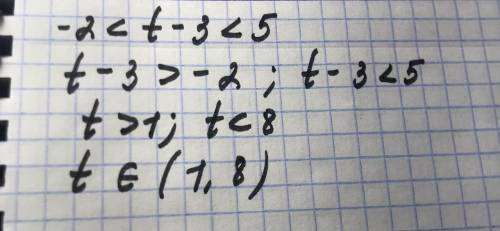 -2 < t - 3 < 5
t - 3 > -2 ; t - 3 < 5
t > 1 ; t < 8
t ∈ (1, 8)